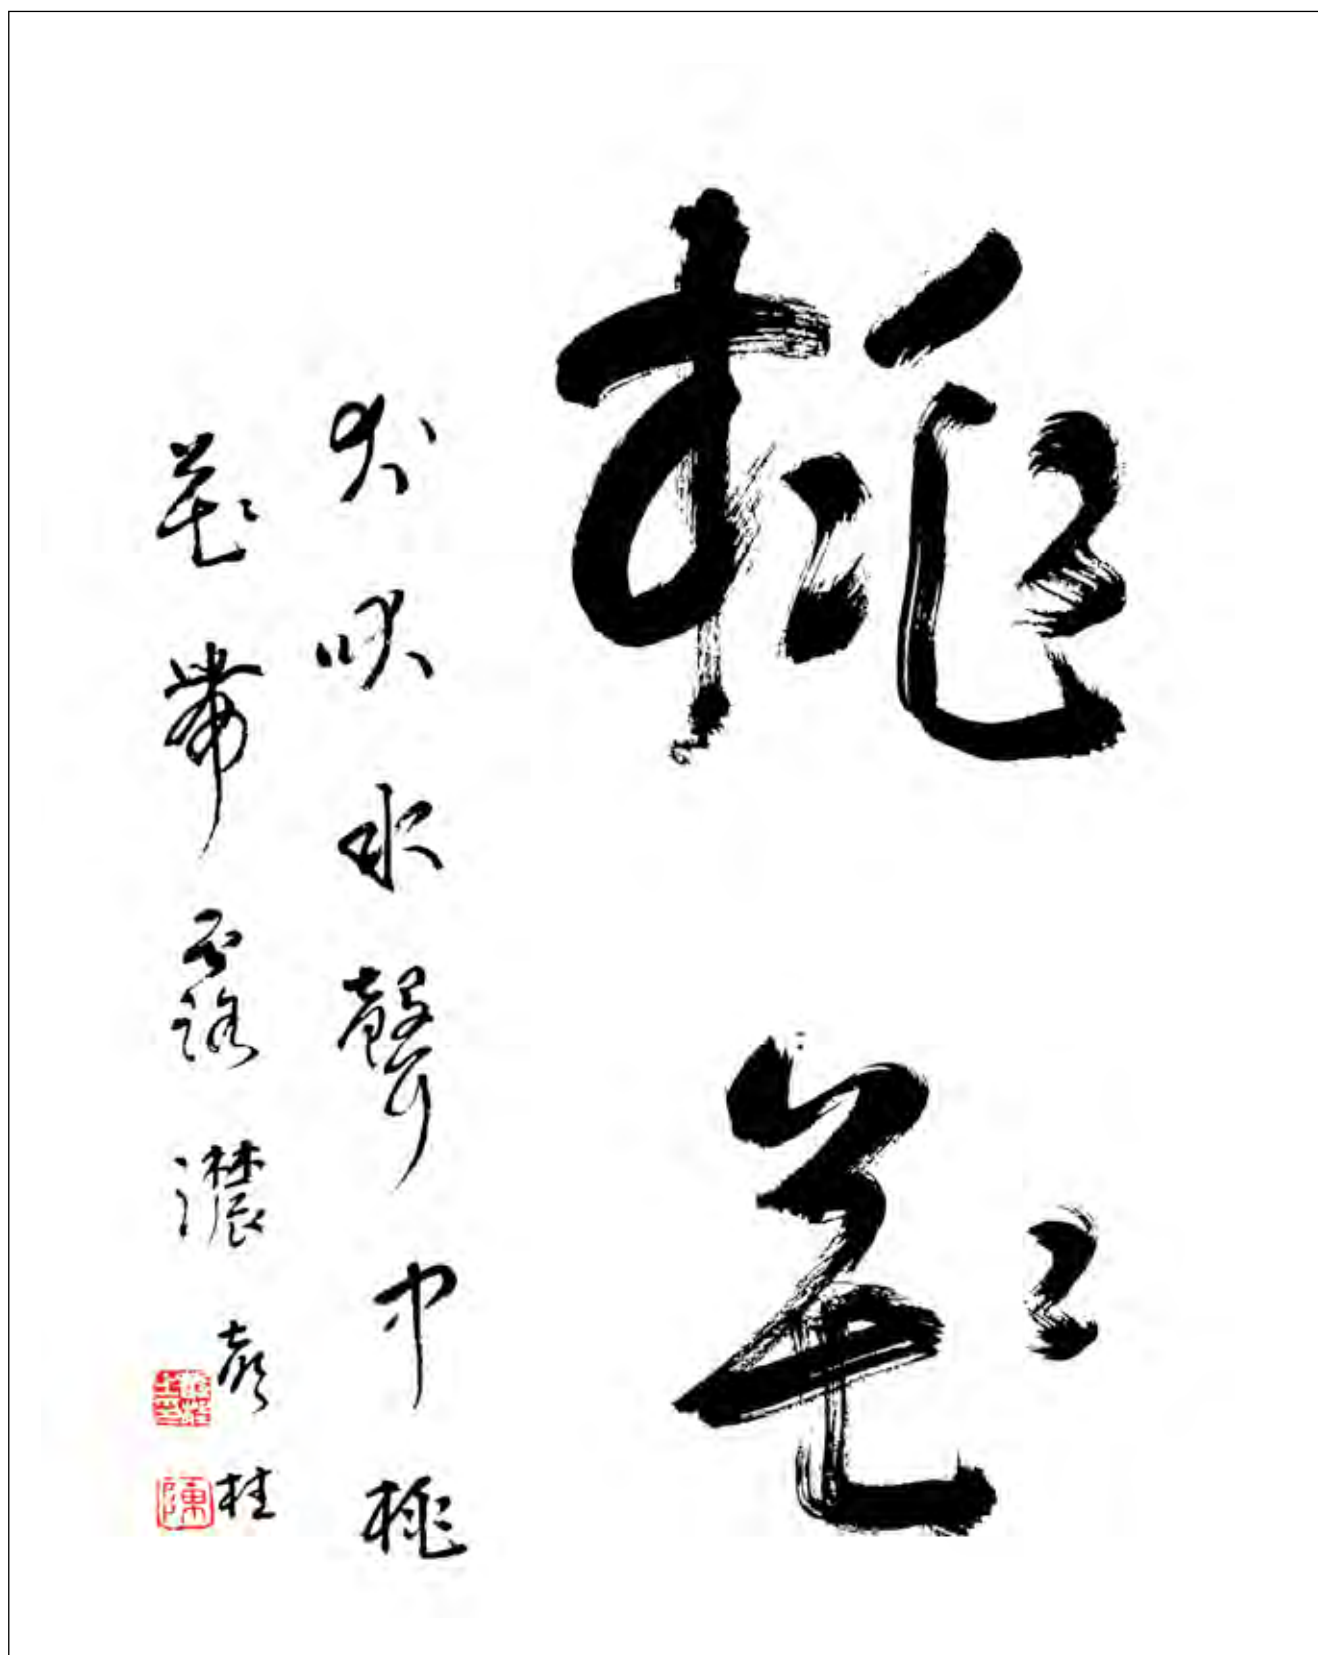 桃花
犬吠水聲中桃
花帶露濃
桂
陳